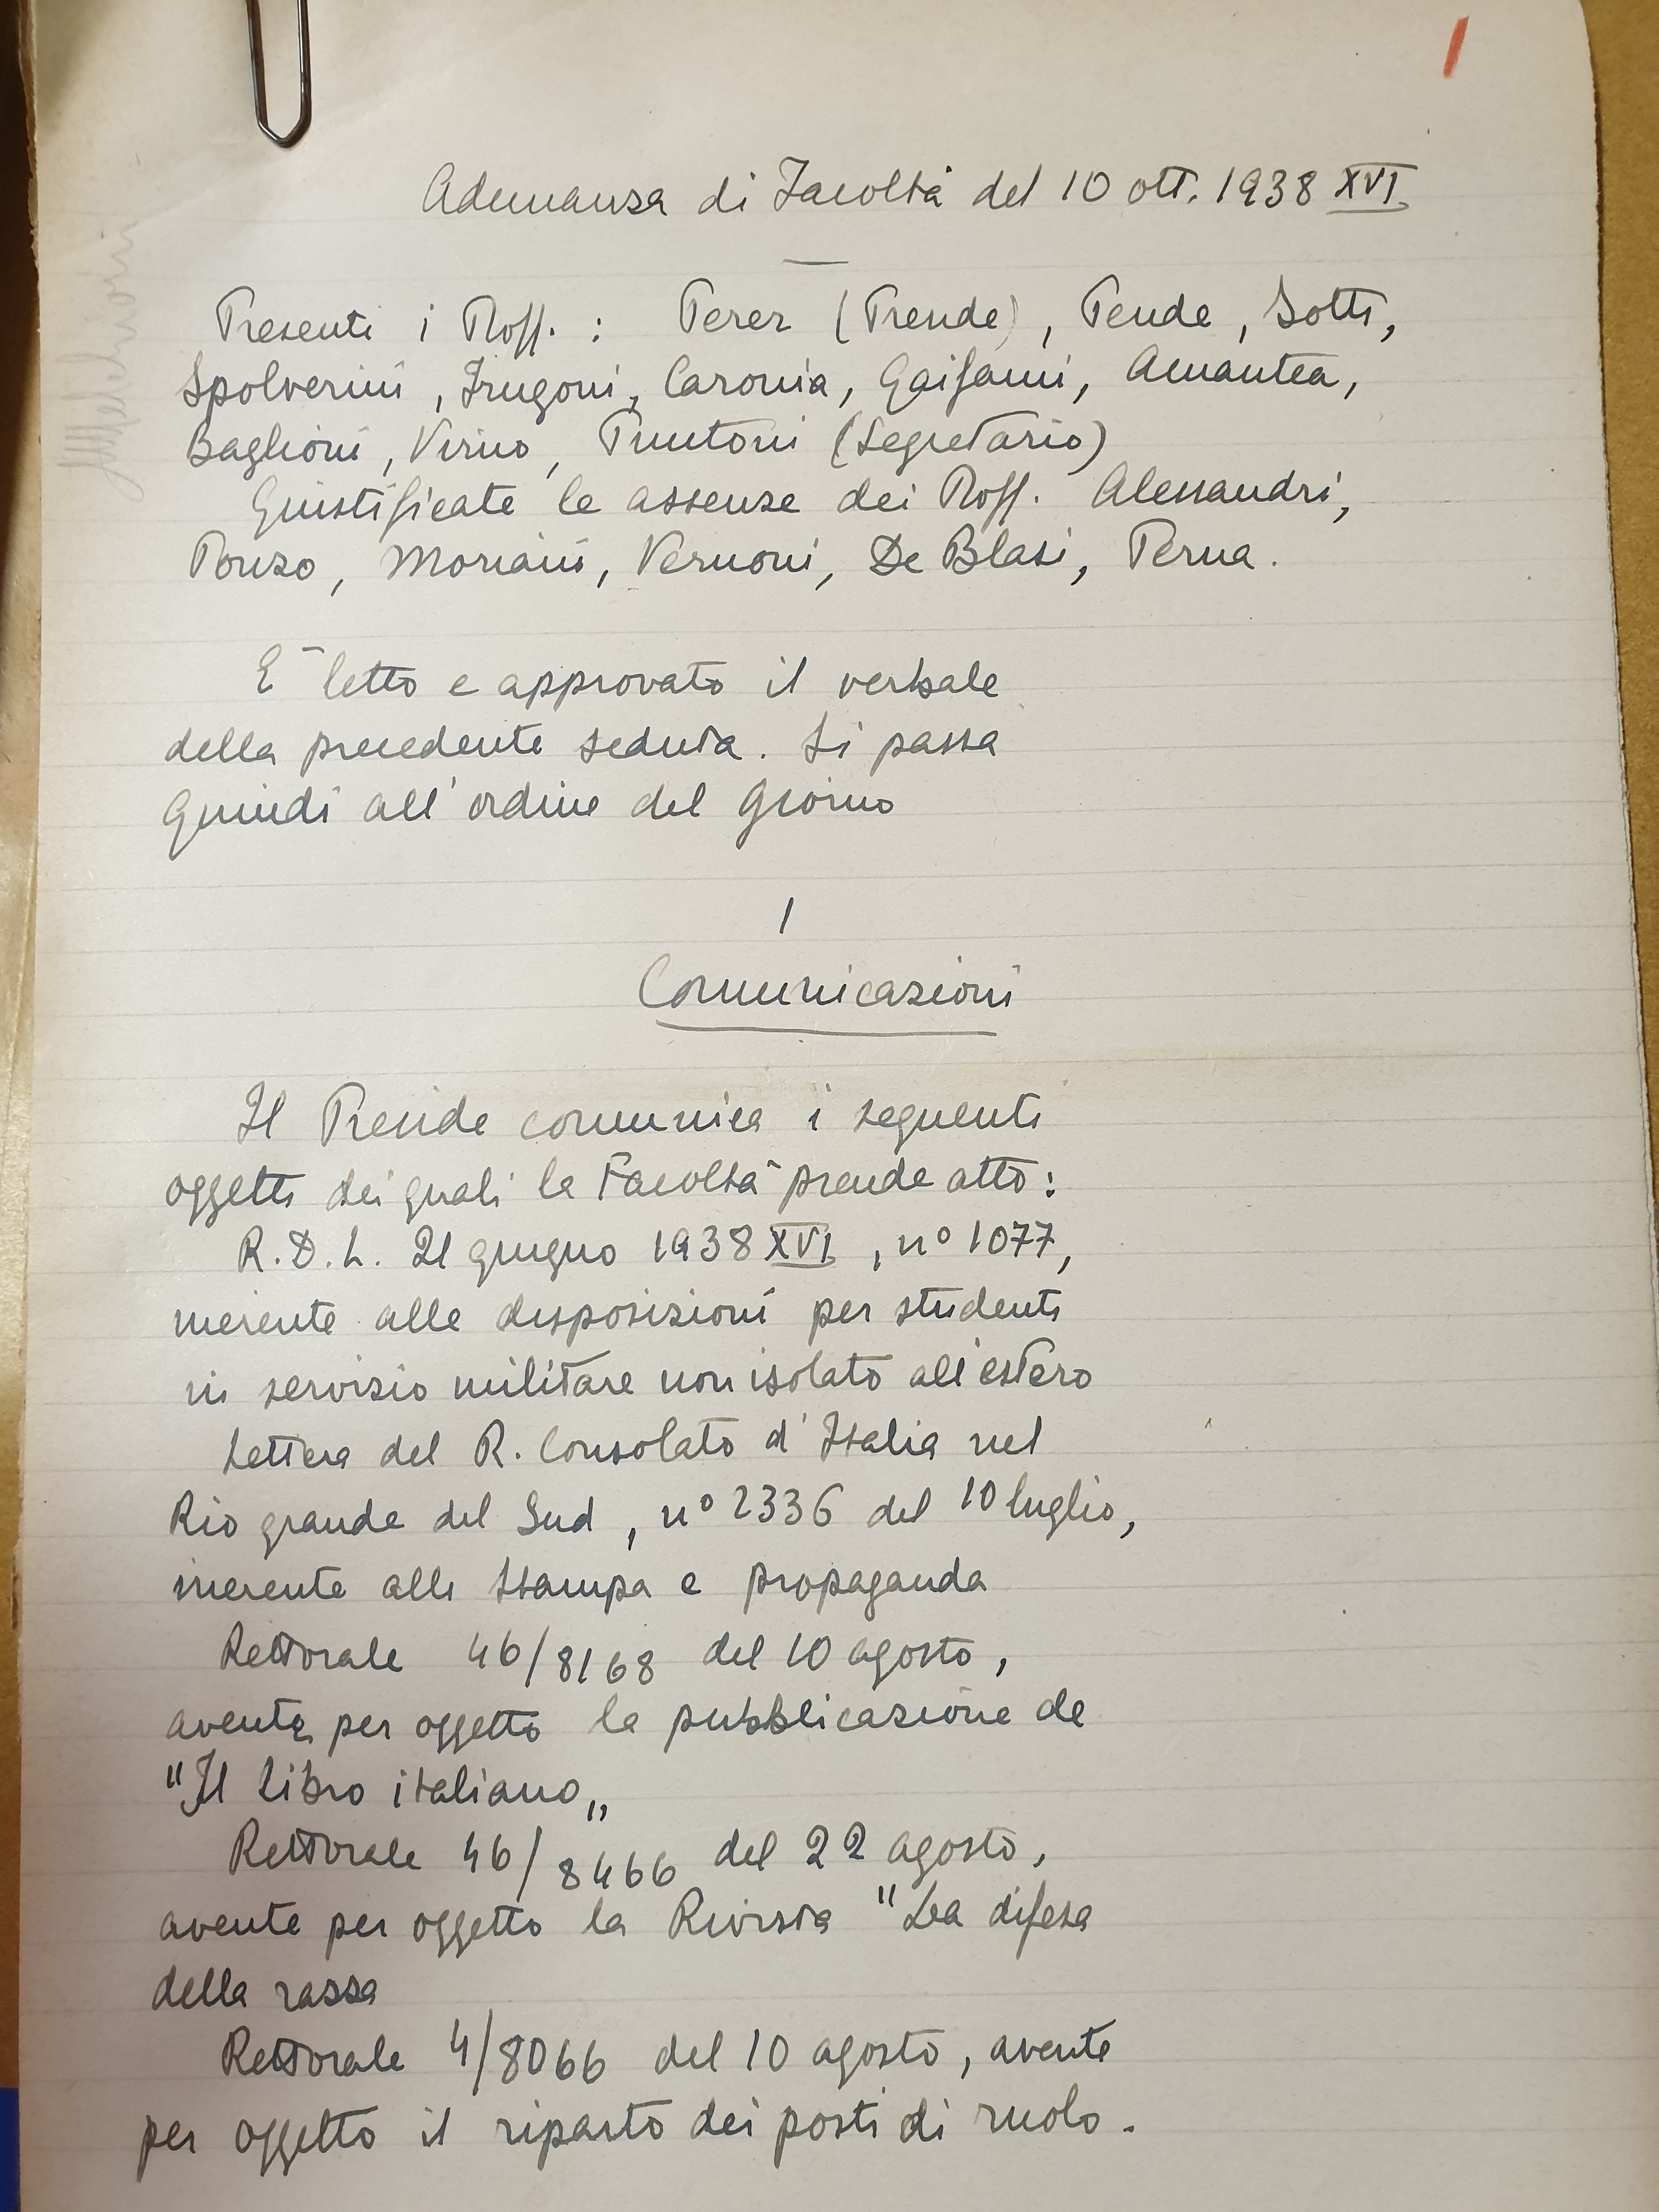 Adunanza di Facoltà del 10 ott. 1938 XVI
Presenti i Proff. : Perez (Preside), Pende, Dotti,
Spolverini, Frugoni, Caronia, Gaifami, Amantea,
Baglioni, Virno, Puntoni (Segretario)
Giustificate le assenze dei Proff. Alessandri,
Ponzo, Moriani, Vernoni, De Blasi, Perna.
E' letto e approvato il verbale
della precedente seduta. Si passa
quindi all'ordine del giorno
1
Comunicazioni
Il Preside comunica i seguenti
oggetti dei quali la Facoltà prende atto:
R.D.L. 21 giugno 1938 XVI, n° 1077,
inerente alle disposizioni per studenti
in servizio militare non isolato all'estero
Lettera del R. Consolato d'Italia nel
Rio grande del Sud, n° 2336 del 10 luglio,
inerente alla stampa e propaganda
Rettorale 46/8168 del 10 agosto,
avente per oggetto la pubblicazione de
"Il Libro italiano„
Rettorale 46/8466 del 22 agosto,
avente per oggetto la Rivista "La difesa
della razza
Rettorale 4/8066 del 10 agosto, avente
per oggetto il riparto dei posti di ruolo.